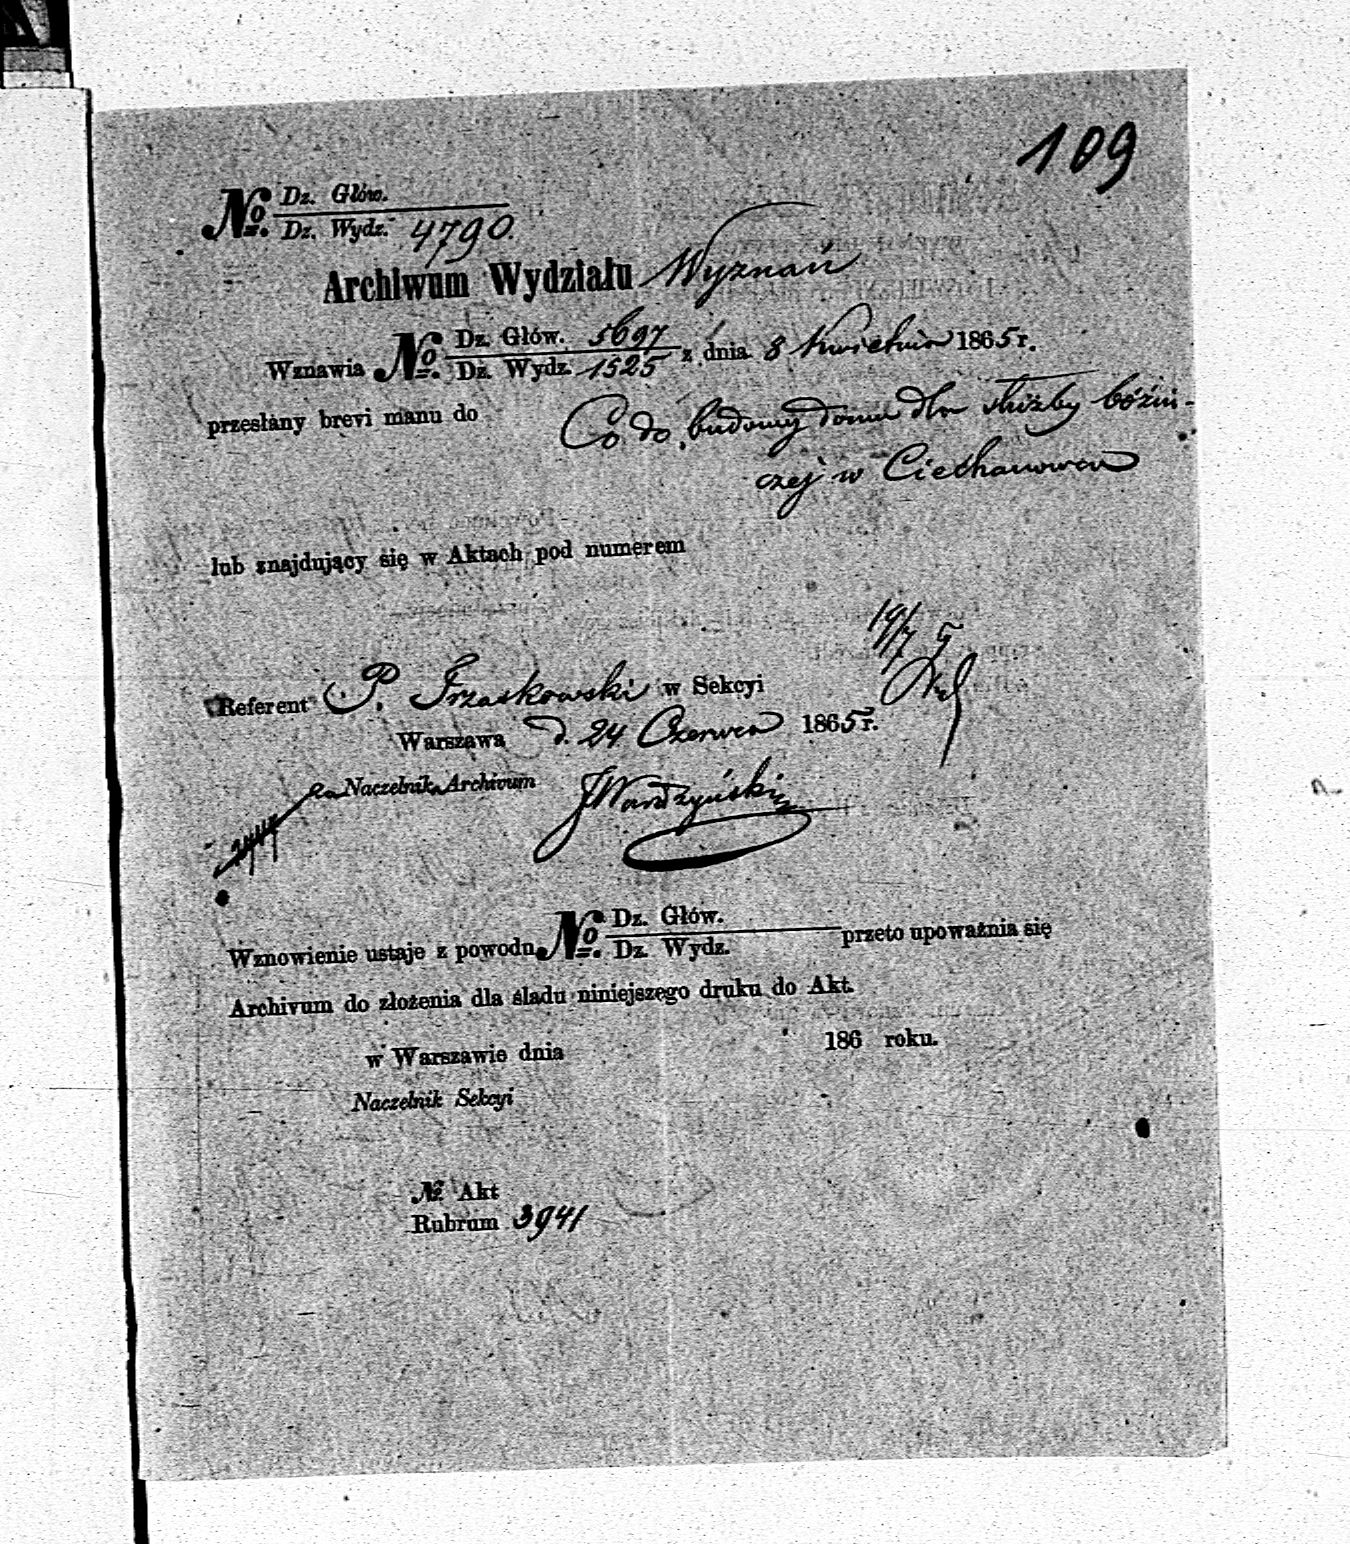 109
№ Dz. Głów.
Dz. Wydz. 4790.
Archiwum Wydziału Wyznań
Wznawia № Dz. Głów. 5697
Dz. Wydz. 1525 z dnia 8 Kwietnia 1865 r.
przesłany brevi manu do Co do budowy domu dla służby bóźni-
czej w Ciechanowcu
lub znajdujący się w Aktach pod numerem
19/7
Referent P. Trzaskowski w Sekcyi
Warszawa d. 24 Czerwca 1865 r.
za Naczelnika Archivum JWardzyński
Wznowienie ustaje z powodu № Dz. Głów.
Dz. Wydz. przeto upoważnia się
Archivum do złożenia dla śladu niniejszego druku do Akt.
w Warszawie dnia 186 roku.
Naczelnik Sekcyi
№ Akt
Rubrum 3941